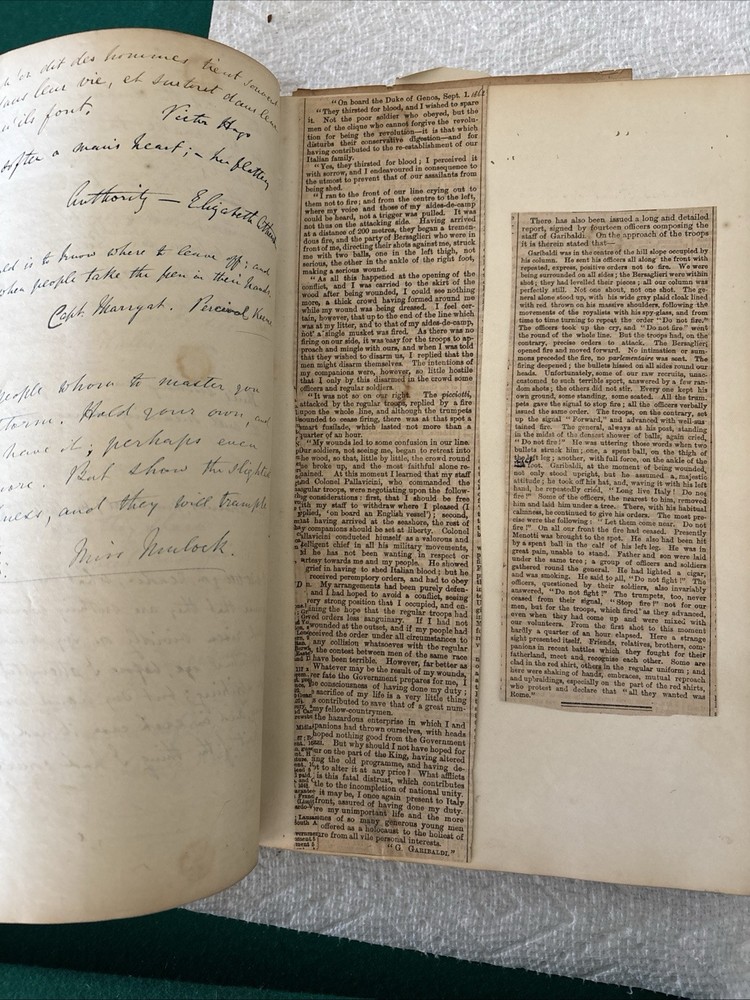 dit des hommes tient souvent
dans leur vie, et surtout dans
qu'ils font. Victor Hugo
after a man's heart; — her flattery
Authority — Elizabeth
is to know where to leave off; and
when people take the pen in their hands
Capt. Marryat. Percival Keene
people whom to master you
storm. Hold your own, and
have it, perhaps even
more. But show the slightest
ness, and they will trample
Miss Mulock.
"On board the Duke of Genoa, Sept. 1. 1862
"They thirsted for blood, and I wished to spare
it. Not the poor soldier who obeyed, but the
men of the clique who cannot forgive the revolu-
tion for being the revolution—it is that which
disturbs their conservative digestion—and for
having contributed to the re-establishment of our
Italian family.
"Yes, they thirsted for blood; I perceived it
with sorrow, and I endeavoured in consequence to
the utmost to prevent that of our assailants from
being shed.
"I ran to the front of our line crying out to
them not to fire; and from the centre to the left,
where my voice and those of my aides-de-camp
could be heard, not a trigger was pulled. It was
not thus on the attacking side. Having arrived
at a distance of 200 metres, they began a tremen-
dous fire, and the party of Bersaglieri who were in
front of me, directing their shots against me, struck
me with two balls, one in the left thigh, not
serious, the other in the ankle of the right foot,
making a serious wound.
"As all this happened at the opening of the
conflict, and I was carried to the skirt of the
wood after being wounded, I could see nothing
more, a thick crowd having formed around me
while my wound was being dressed. I feel cer-
tain, however, that up to the end of the line which
was at my litter, and to that of my aides-de-camp,
not a single musket was fired. As there was no
firing on our side, it was easy for the troops to ap-
proach and mingle with ours, and when I was told
that they wished to disarm us, I replied that the
men might disarm themselves. The intentions of
my companions were, however, so little hostile
that I only by this disarmed in the crowd some
officers and regular soldiers.
"It was not so on our right. The picciotti,
attacked by the regular troops, replied by a fire
upon the whole line, and although the trumpets
sounded to cease firing, there was at that spot a
smart fusilade, which lasted not more than a
quarter of an hour.
"My wounds led to some confusion in our line.
Our soldiers, not seeing me, began to retreat into
the wood, so that, little by little, the crowd round
me broke up, and the most faithful alone re-
mained. At this moment I learned that my staff
and Colonel Pallavicini, who commanded the
regular troops, were negotiating upon the follow-
ing considerations: first, that I should be free
with my staff to withdraw where I pleased (I
replied, 'on board an English vessel'); second,
that having arrived at the seashore, the rest of
my companions should be set at liberty. Colonel
Pallavicini conducted himself as a valorous and
intelligent chief in all his military movements,
and he has not been wanting in respect or
courtesy towards me and my people. He showed
grief in having to shed Italian blood; but he
received peremptory orders, and had to obey
My arrangements had been purely defen-
and I had hoped to avoid a conflict, seeing
very strong position that I occupied, and en-
taining the hope that the regular troops had
received orders less sanguinary. If I had not
wounded at the outset, and if my people had
received the order under all circumstances to
any collision whatsoever with the regular
the contest between men of the same race
have been terrible. However, far better as
Whatever may be the result of my wounds,
fate the Government prepares for me, I
the consciousness of having done my duty;
sacrifice of my life is a very little thing
contributed to save that of a great num-
my fellow-countrymen.
the hazardous enterprise in which I and
panions had thrown ourselves, with heads
hoped nothing good from the Government
But why should I not have hoped for
on the part of the King, having altered
the old programme, and having de-
to alter it at any price? What afflicts
is this fatal distrust, which contributes
tle to the incompletion of national unity.
it may be, I once again present to Italy
front, assured of having done my duty.
my unimportant life and the more
of so many generous young men
offered as a holocaust to the holiest of
from all vile personal interests.
"G. GARIBALDI."
There has also been issued a long and detailed
report, signed by fourteen officers composing the
staff of Garibaldi. On the approach of the troops
it is therein stated that—
Garibaldi was in the centre of the hill slope occupied by
his column. He sent his officers all along the front with
repeated, express, positive orders not to fire. We were
being surrounded on all sides; the Bersaglieri were within
shot; they had levelled their pieces; all our column was
perfectly still. Not one shout, not one shot. The ge-
neral alone stood up, with his wide gray plaid cloak lined
with red thrown on his massive shoulders, following the
movements of the royalists with his spy-glass, and from
time to time turning to repeat the order "Do not fire."
The officers took up the cry, and "Do not fire" went
the round of the whole line. But the troops had, on the
contrary, precise orders to attack. The Bersaglieri
opened fire and moved forward. No intimation or sum-
mons preceded the fire, no parlementaire was sent. The
firing deepened; the bullets hissed on all sides round our
heads. Unfortunately, some of our raw recruits, unac-
customed to such terrible sport, answered by a few ran-
dom shots; the others did not stir. Every one kept his
own ground, some standing, some seated. All the trum-
pets gave the signal to stop fire; all the officers verbally
issued the same order. The troops, on the contrary, set
up the signal "Forward," and advanced with well-sus
tained fire. The general, always at his post, standing
in the midst of the densest shower of balls, again cried,
"Do not fire!" He was uttering those words when two
bullets struck him; one, a spent ball, on the thigh of
left leg; another, with full force, on the ankle of the
foot. Garibaldi, at the moment of being wounded,
not only stood upright, but he assumed a majestic
attitude; he took off his hat, and, waving it with his left
hand, he repeatedly cried, "Long live Italy! Do not
fire!" Some of the officers, the nearest to him, removed
him and laid him under a tree. There, with his habitual
calmness, he continued to give his orders. The most pre-
cise were the following: "Let them come near. Do not
fire!" On all our front the fire had ceased. Presently
Menotti was brought to the spot. He also had been hit
by a spent ball in the calf of his left leg. He was in
great pain, unable to stand. Father and son were laid
under the same tree; a group of officers and soldiers
gathered round the general. He had lighted a cigar,
and was smoking. He said to all, "Do not fight!" The
officers, questioned by their soldiers, also invariably
answered, "Do not fight!" The trumpets, too, never
ceased from their signal, "Stop fire!" not for our
men, but for the troops, which fired as they advanced,
even when they had come up and were mixed with
our volunteers. From the first shot to this moment
hardly a quarter of an hour elapsed. Here a strange
sight presented itself. Friends, relatives, brothers, com-
panions in recent battles which they fought for their
fatherland, meet and recognise each other. Some are
clad in the red shirt, others in the regular uniform; and
here were shaking of hands, embraces, mutual reproach
and upbraidings, especially on the part of the red shirts,
who protest and declare that "all they wanted was
Rome."